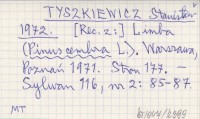 TYSZKIEWICZ Stanisław
1972. [Rec. z:] Limba
(Pinus cembra L.). Warszawa,
Poznań 1971. Stron 177. —
Sylwan 116, nr 2: 85-87.
MT